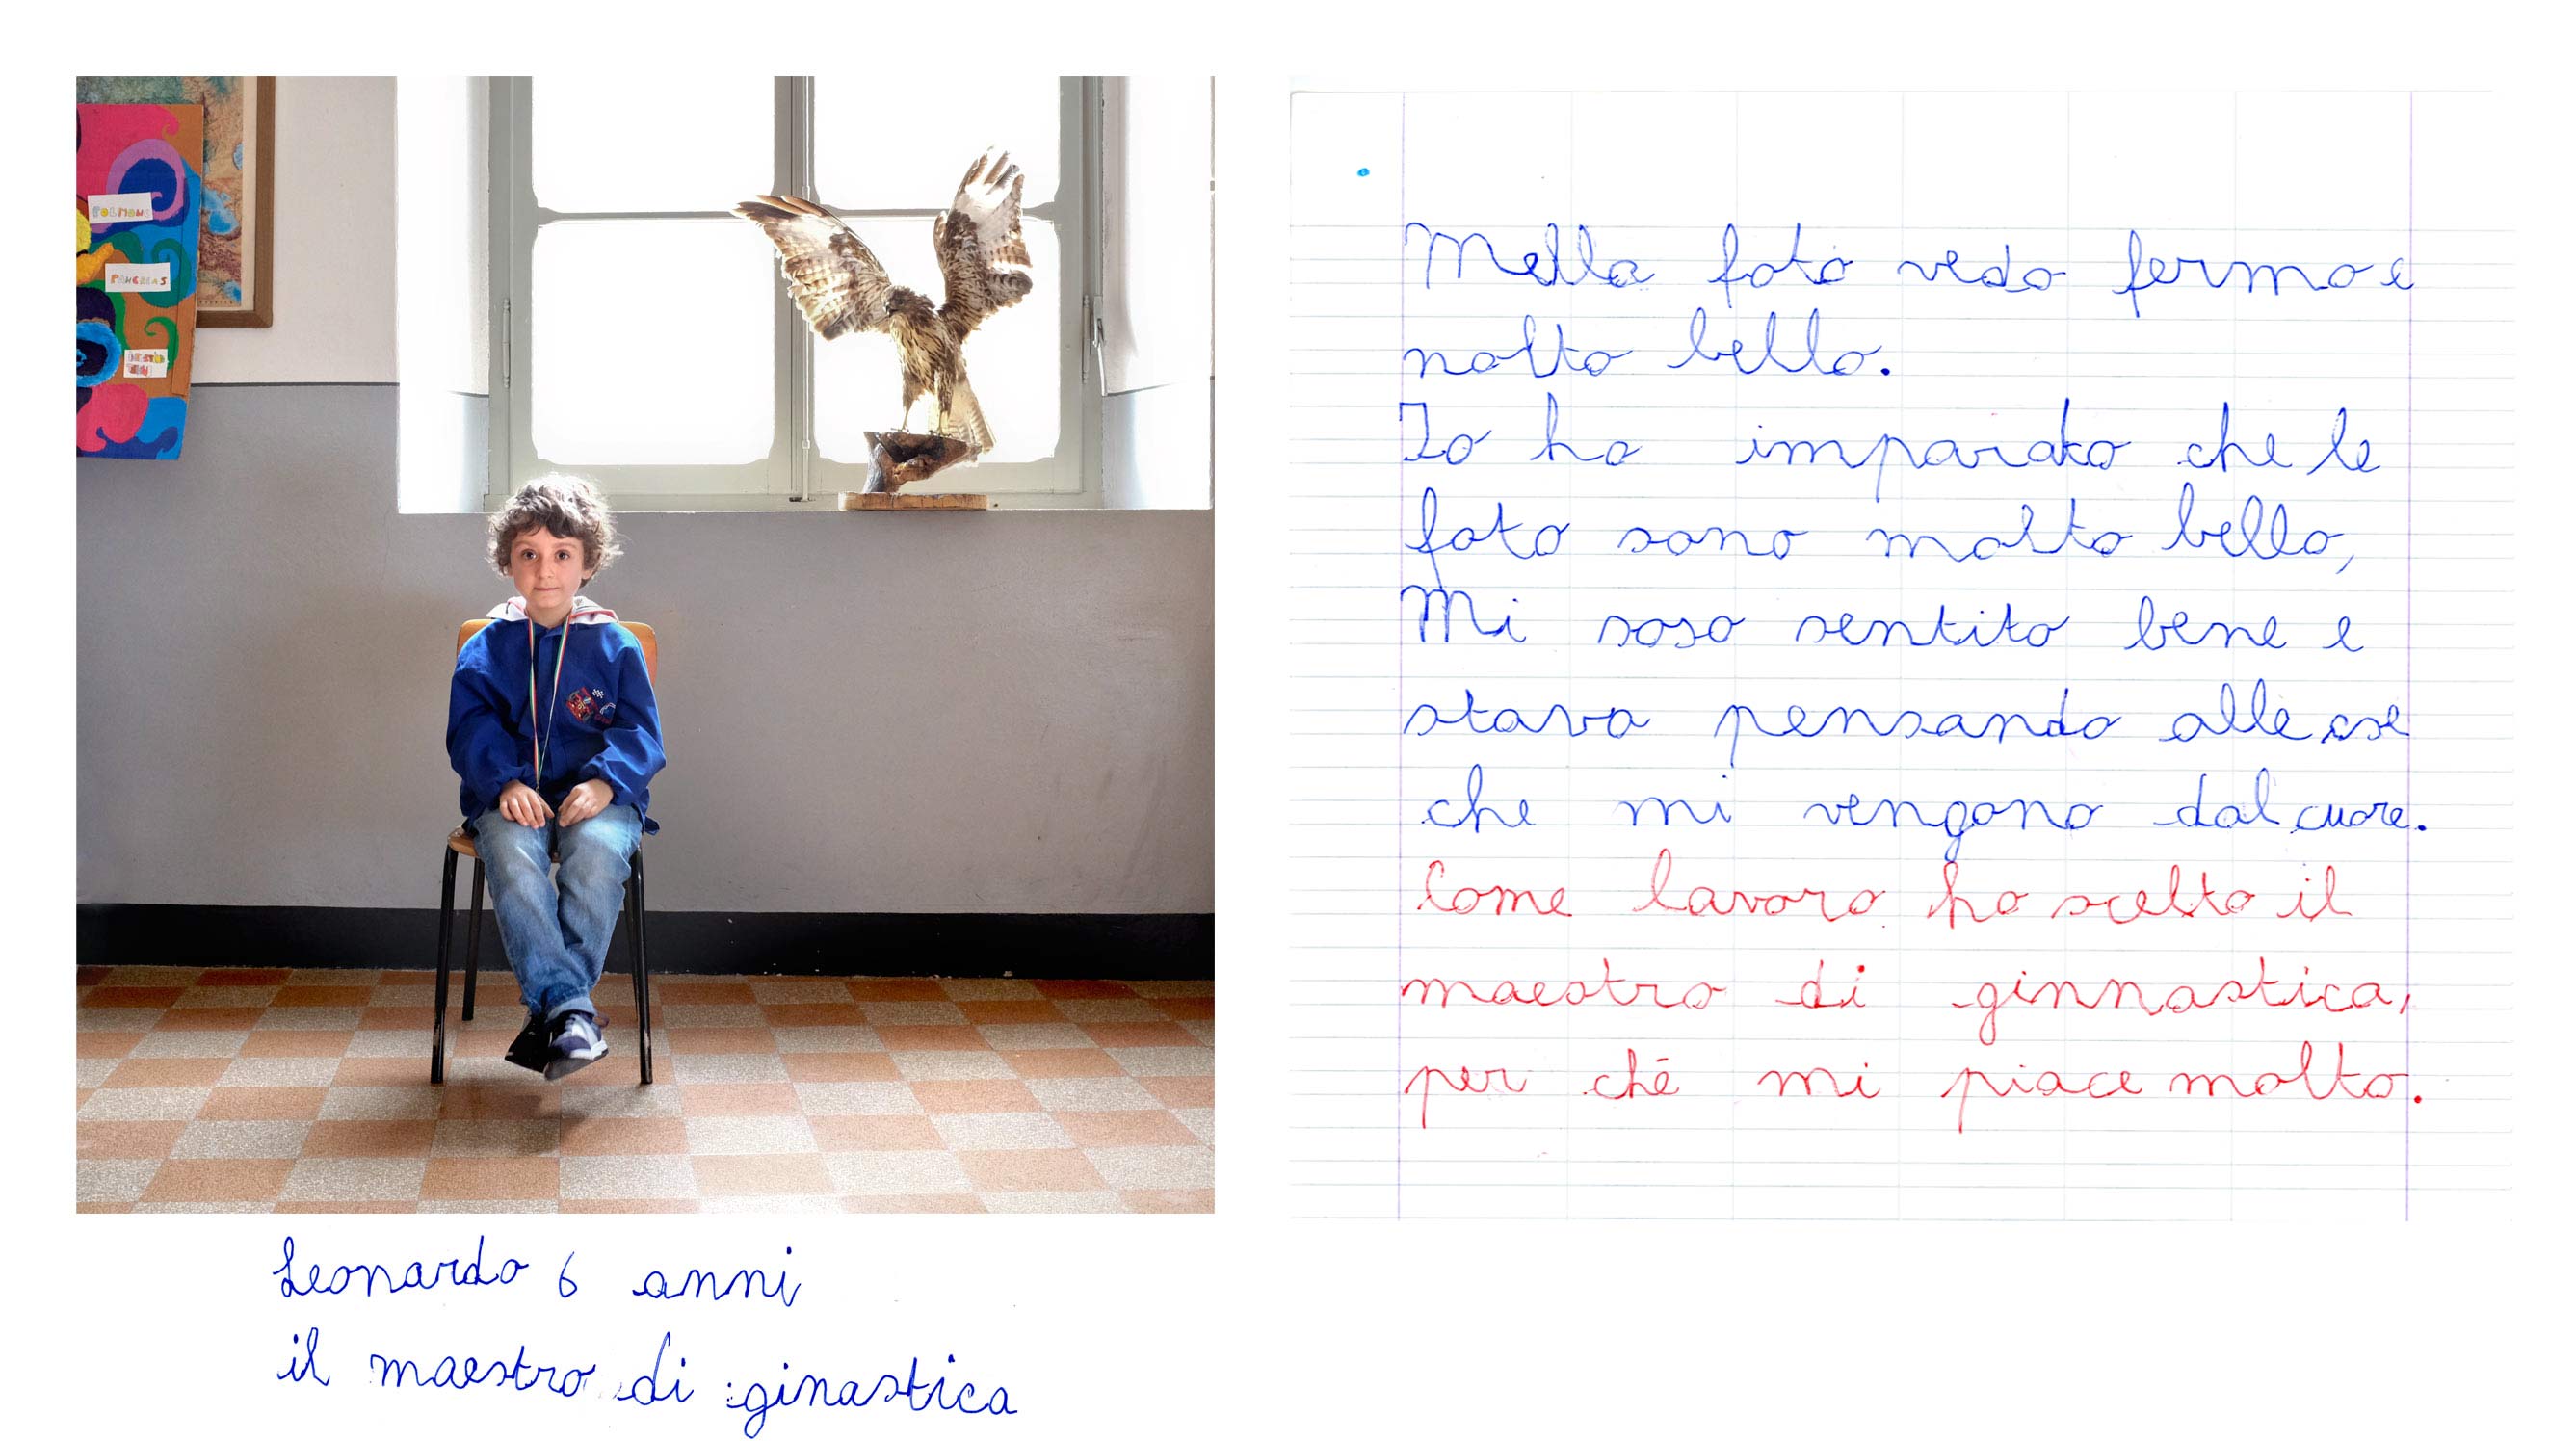 POLMONE
PANCREAS
Mella foto vedo fermo e
nolto bello.
Io ho imparato che le
foto sono molto bello,
Mi soso sentito bene e
stavo pensando alle cose
che mi vengono dal cuore.
Come lavoro ho scelto il
maestro di ginnastica,
per ché mi piace molto.
Leonardo 6 anni
il maestro di ginastica